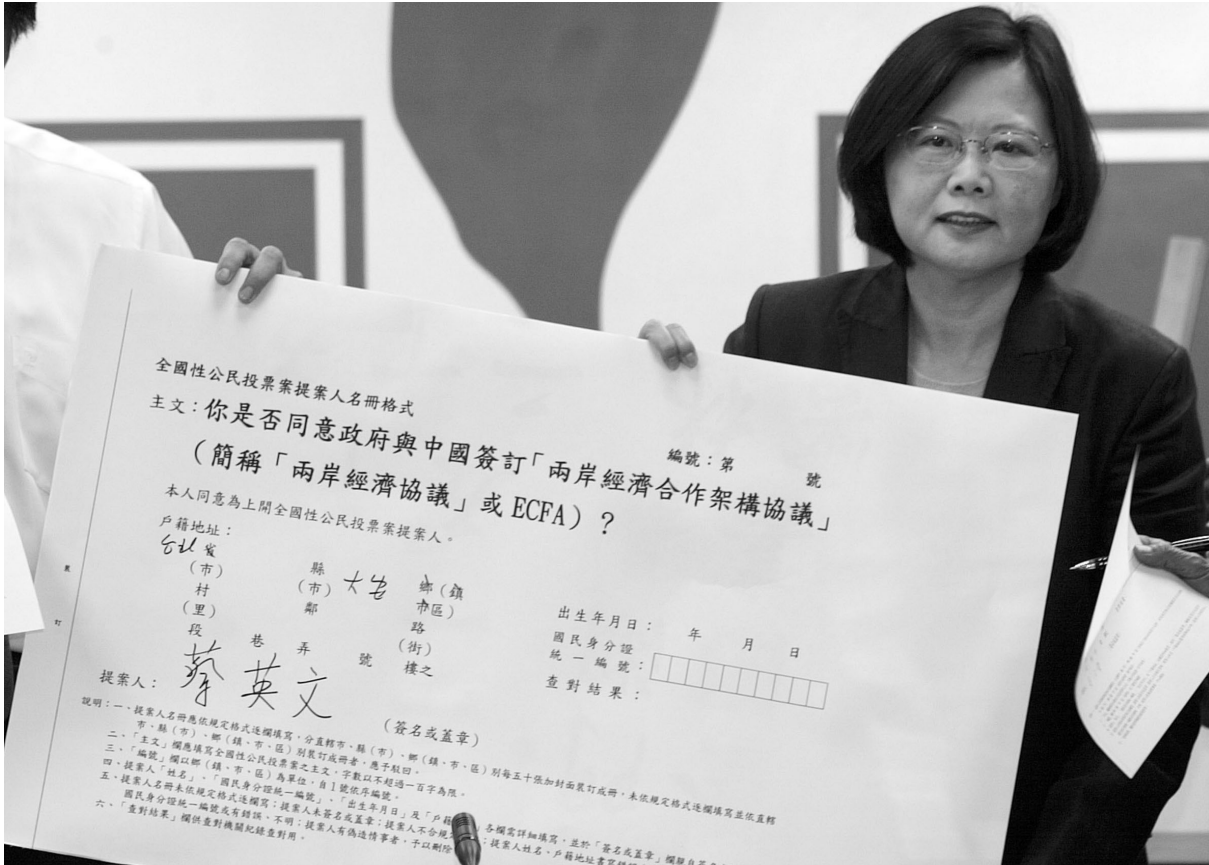 全國性公民投票案提案人名冊格式
編號：第　　號
主文：你是否同意政府與中國簽訂「兩岸經濟合作架構協議」
（簡稱「兩岸經濟協議」或ECFA）？
本人同意為上開全國性公民投票案提案人。
戶籍地址：
台北省　　縣　　大安　鄉（鎮
（市）　（市）　　市區）
村　　鄰　　路
（里）　　（街）
段　巷　弄　號　樓之
出生年月日：　年　月　日
國民身分證
統一編號：
查對結果：
提案人：蔡英文
（簽名或蓋章）
說明：一、提案人名冊應依規定格式逐欄填寫，分直轄市、縣（市）、鄉（鎮、市、區）別每五十張加封面裝訂成冊，未依規定格式逐欄填寫並依直轄
市、縣（市）、鄉（鎮、市、區）別裝訂成冊者，應予駁回。
二、「主文」欄應填寫全國性公民投票案之主文，字數以不超過一百字為限。
三、「編號」欄以鄉（鎮、市、區）為單位，自1號依序編號。
四、提案人「姓名」、「國民身分證統一編號」、「出生年月日」及「戶籍 各欄需詳細填寫，並於「簽名或蓋章」欄
五、提案人名冊未依規定格式逐欄填寫；提案人未簽名或蓋章；提案人不合規 提案人姓名、戶籍地址書寫
國民身分證統一編號或有錯誤、不明；提案人有偽造情事者，予以刪除
六、「查對結果」欄供查對機關紀錄查對用。
裝
訂